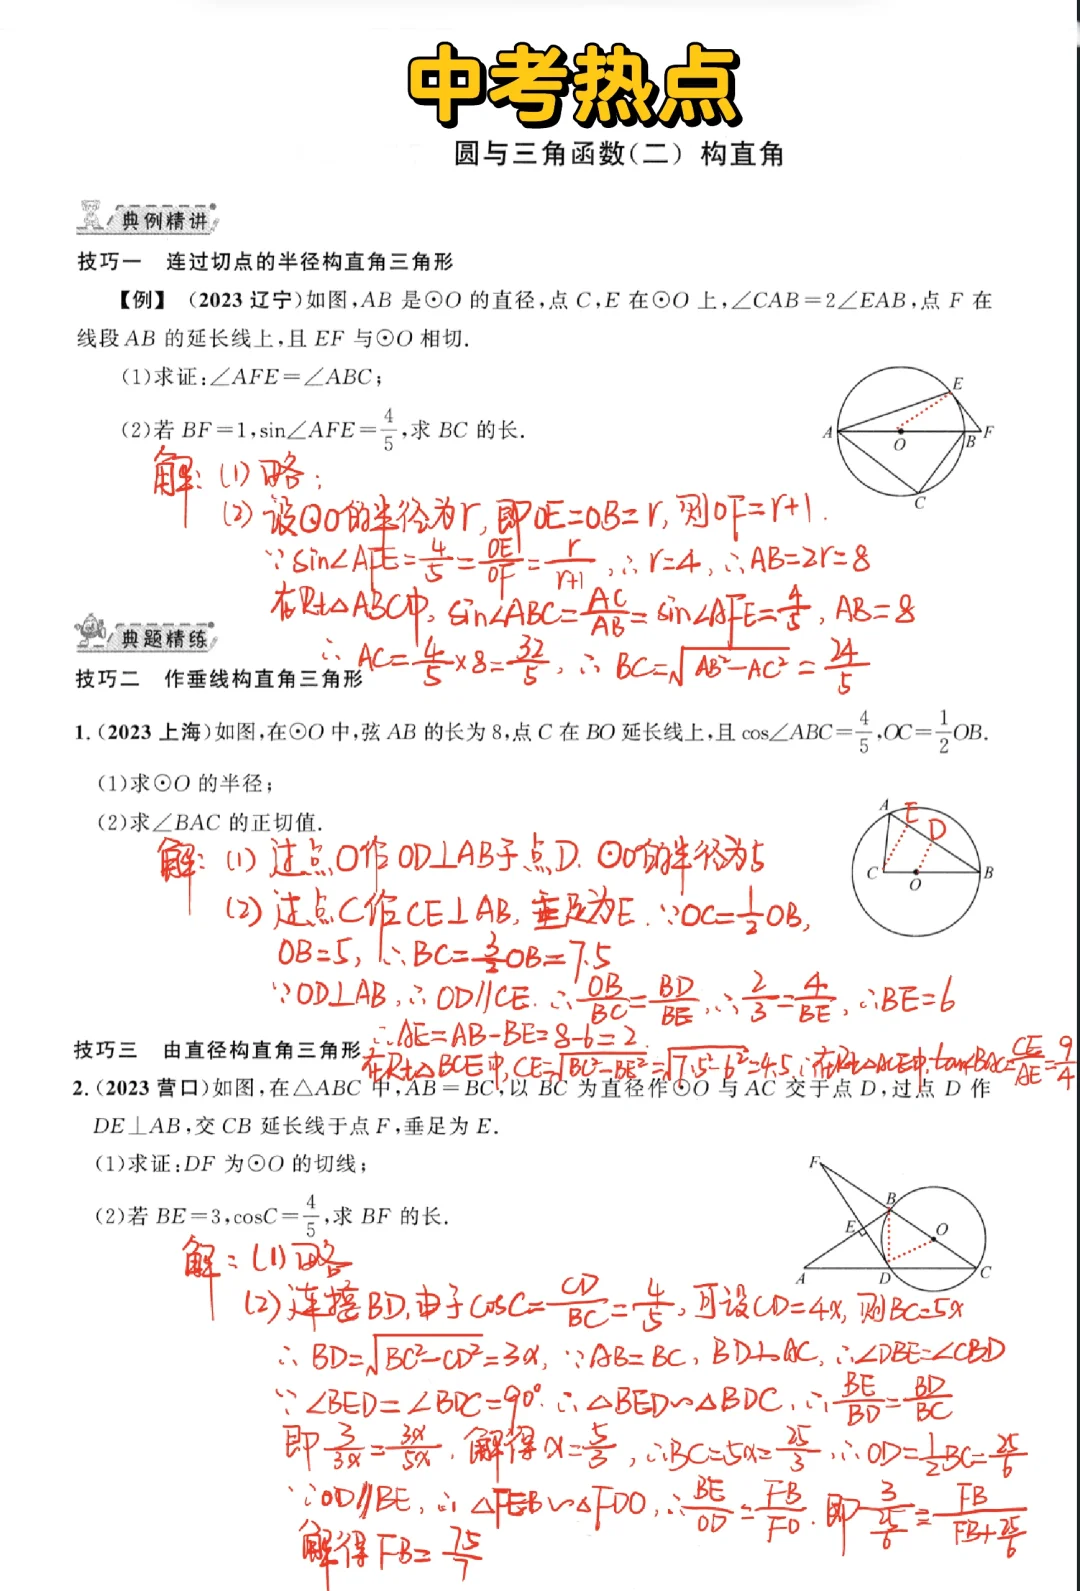 中考热点
圆与三角函数(二) 构直角
典例精讲
技巧一 连过切点的半径构直角三角形
【例】 (2023 辽宁)如图,AB 是⊙O 的直径,点 C,E 在⊙O 上,∠CAB=2∠EAB,点 F 在
线段 AB 的延长线上,且 EF 与⊙O 相切.
(1)求证:∠AFE=∠ABC;
(2)若 BF=1,sin∠AFE=4/5,求 BC 的长.
A
E
O
B
F
C
解:(1)略;
(2)设⊙O的半径为r,即OE=OB=r,则OF=r+1.
∵sin∠AFE=4/5=OE/OF=r/(r+1),∴r=4,∴AB=2r=8
在Rt△ABC中,sin∠ABC=AC/AB=sin∠AFE=4/5,AB=8
∴AC=4/5×8=32/5,∴BC=√(AB²-AC²)=24/5
典题精练
技巧二 作垂线构直角三角形
1.(2023 上海)如图,在⊙O 中,弦 AB 的长为 8,点 C 在 BO 延长线上,且 cos∠ABC=4/5,OC=1/2OB.
(1)求⊙O 的半径;
(2)求∠BAC 的正切值.
A
E
D
C
O
B
解:(1)过点O作OD⊥AB于点D.⊙O的半径为5
(2)过点C作CE⊥AB,垂足为E.∵OC=1/2OB,
OB=5,∴BC=3/2OB=7.5
∵OD⊥AB,∴OD∥CE.∴OB/BC=BD/BE,∴2/3=4/BE,∴BE=6
∴AE=AB-BE=8-6=2.
在Rt△BCE中,CE=√(BC²-BE²)=√(7.5²-6²)=4.5,∴在Rt△ACE中,tan∠BAC=CE/AE=9/4
技巧三 由直径构直角三角形
2.(2023 营口)如图,在△ABC 中,AB=BC,以 BC 为直径作⊙O 与 AC 交于点 D,过点 D 作
DE⊥AB,交 CB 延长线于点 F,垂足为 E.
(1)求证:DF 为⊙O 的切线;
(2)若 BE=3,cosC=4/5,求 BF 的长.
F
B
E
O
A
D
C
解:(1)略
(2)连接BD,由于cosC=CD/BC=4/5,可设CD=4x,则BC=5x
∴BD=√(BC²-CD²)=3x,∵AB=BC,BD⊥AC,∴∠DBE=∠CBD
∵∠BED=∠BDC=90°∴△BED∽△BDC,∴BE/BD=BD/BC
即3/3x=3x/5x.解得x=5/3,∴BC=5x=25/3,∴OD=1/2BC=25/6
∵OD∥BE,∴△FEB∽△FDO,∴BE/OD=FB/FO.即3/(25/6)=FB/(FB+25/6)
解得FB=75/7